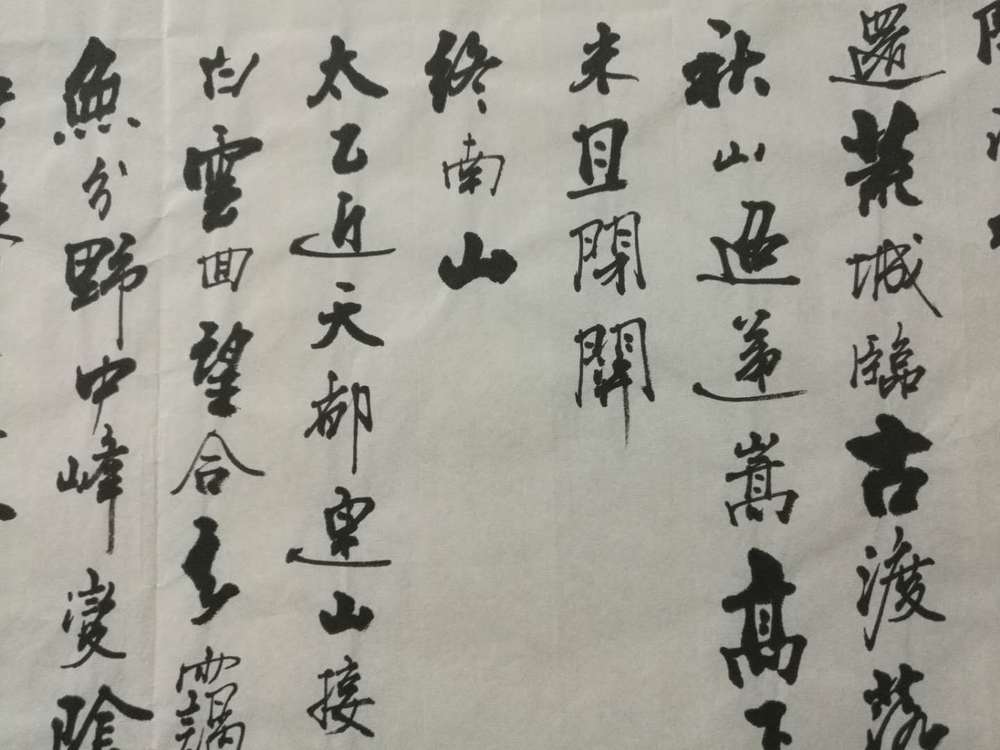 還荒城臨古渡落
秋山迢递嵩高下
来且閉關
終南山
太乙近天都連山接
白雲回望合靄
無分野中峰變陰